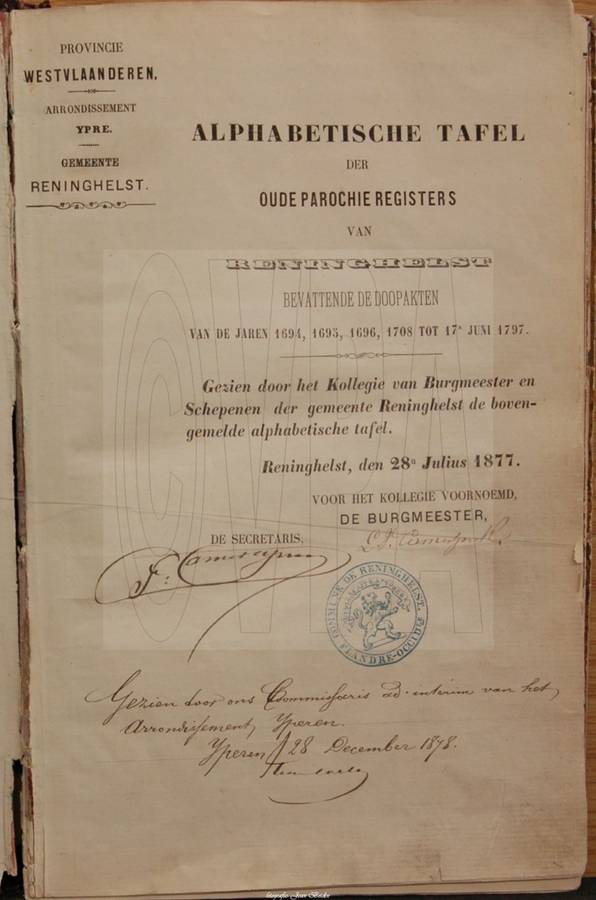 PROVINCIE
WESTVLAANDEREN,
ARRONDISSEMENT
YPRE.
GEMEENTE
RENINGHELST.
ALPHABETISCHE TAFEL
DER
OUDE PAROCHIE REGISTERS
VAN
RENINGHELST
BEVATTENDE DE DOOPAKTEN
VAN DE JAREN 1694, 1695, 1696, 1708 TOT 17n JUNI 1797.
Gezien door het Kollegie van Burgmeester en
Schepenen der gemeente Reninghelst de boven-
gemelde alphabetische tafel.
Reninghelst, den 28n Julius 1877.
VOOR HET KOLLEGIE VOORNOEMD,
DE BURGMEESTER,
DE SECRETARIS,
COMMUNE DE RENINGHELST.
FLANDRE-OCCIDle
Gezien door ons Commissaris ad-interim van het
Arrondissement, Yperen.
Yperen 28 December 1878.
CVFH
fotografie: Joan